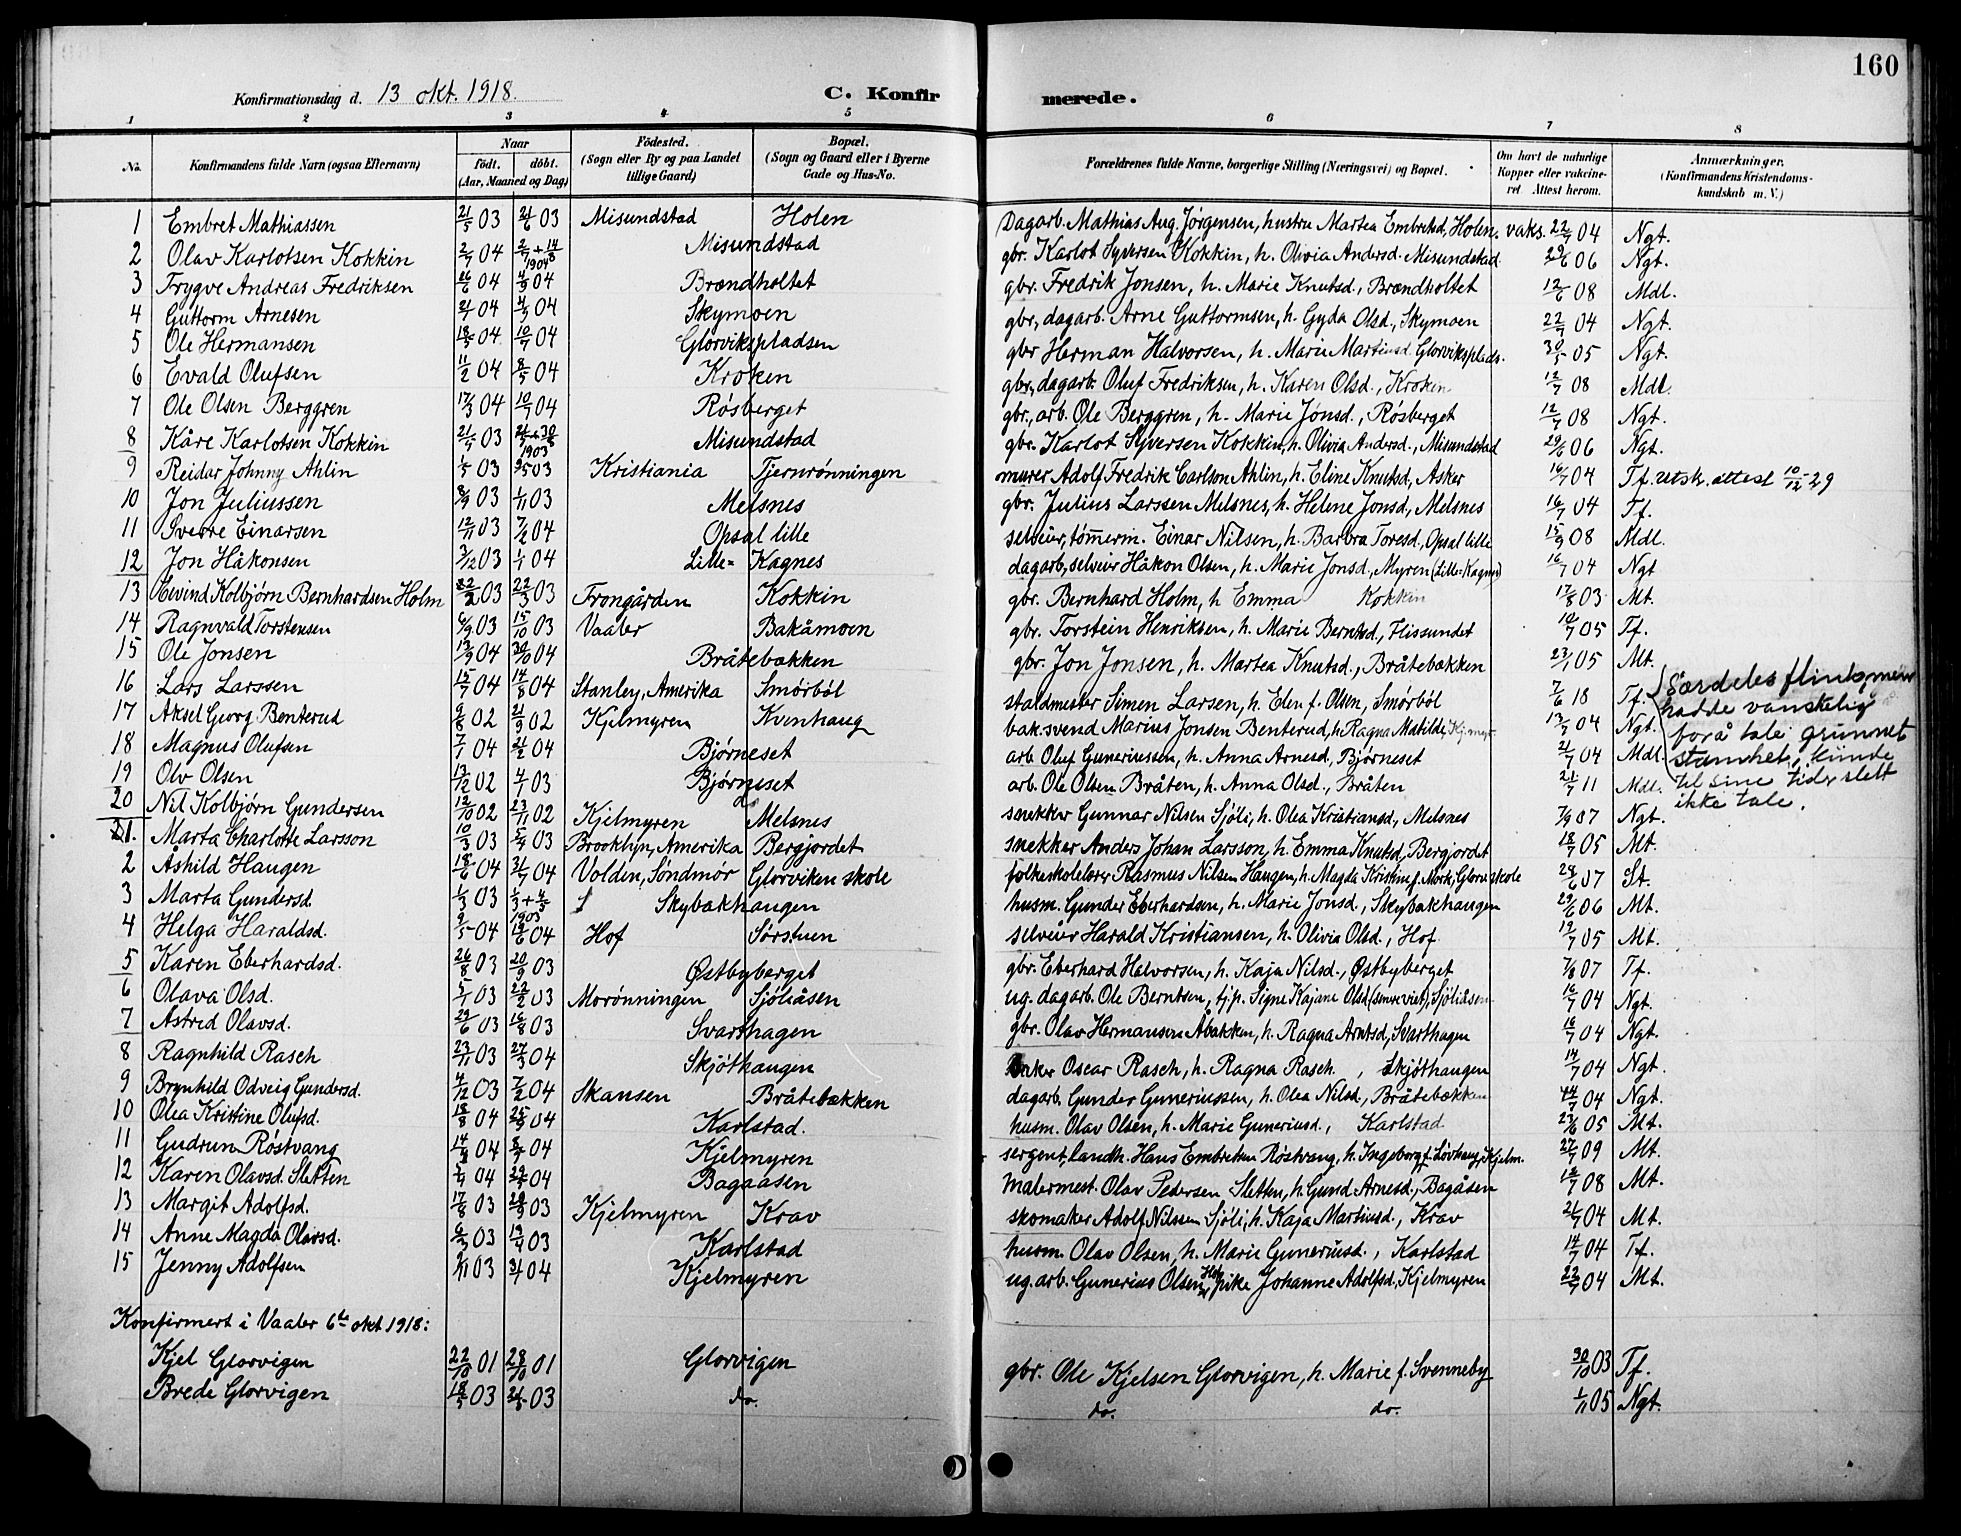 160
Konfirmationsdag d. 13 okt. 1918. C. Konfirmerede.
1 2 3 4 5 6 7 8
No. Konfirmandens fulde Navn (ogsaa Efternavn) Naar födt. döbt. (Aar, Maaned og Dag) Födested. (Sogn eller By og paa Landet tillige Gaard) Bopæl. (Sogn og Gaard eller i Byerne Gade og Hus-No. Forældrenes fulde Navne, borgerlige Stilling (Næringsvei) og Bopæl. Om havt de naturlige Kopper eller vakcineret. Attest herom. Anmærkninger. (Konfirmandens Kristendomskundskab m. V.)
1 Embret Mathiassen 21/5 03 21/6 03 Misundstad Holen Dagarb. Mathias Aug. Jörgensen, hustru Martea Embretsd, Holen. vaks. 22/7 04 Ngt.
2 Olav Karlotsen Kokkin 2/7 04 2/7 + 14/8 1904 Misundstad gbr. Karlot Syversen Kokkin, h. Olivia Andersd. Misundstad 29/6 06 Ngt.
3 Trygve Andreas Fredriksen 26/6 04 4/9 04 Brændholtet gbr. Fredrik Jonsen, h. Marie Knutsd., Brændholtet 12/6 08 Mdl.
4 Guttorm Arnesen 04 04 Skymoen gbr., dagarb. Arne Guttormsen, h. Gyda Olsd., Skymoen 22/7 04 Ngt.
5 Ole Hermansen 04 10/7 04 Glorvikspladsen gbr Herman Halvorsen, h. Marie Martinusd. Glorviksplads. 30/5 05 Ngt.
6 Evald Olufsen 11/2 04 8/5 04 Kroken gbr., dagarb. Oluf Fredriksen, h. Karen Olsd., Kroken 12/7 08 Mdl.
7 Ole Olsen Berggren 17/3 04 10/7 04 Rösberget gbr., arb. Ole Berggren, h. Marie Jonsd., Rösberget 12/7 08 Ngt.
8 Kåre Karlotsen Kokkin 21/7 03 1903 Misundstad gbr. Karlot Syversen Kokkin, h. Olivia Andersd., Misundstad 29/6 06 Ngt.
9 Reidar Johnny Ahlin 1/5 03 03 Kristiania Tjernrönningen murer Adolf Fredrik Carlson Ahlin, h. Eline Knutsd, Asker 16/7 04 Tf. utskr. attest 10/12-29
10 Jon Juliussen 8/9 03 1/11 03 Melsnes gbr. Julius Larssen Melsnes, h. Helene Jonsd, Melsnes 16/7 04 Tf.
11 Sverre Einarsen 12/11 03 7/2 04 Opsal lille selveier, tömerm. Einar Nilsen, h. Barbra Toresd, Opsal lille 15/9 08 Mdl.
12 Jon Håkonsen 3/12 03 1/1 04 Lille-Kagnes dagarb, selveier Håkon Olsen, h. Marie Jonsd., Myren (Lille-Kagnes) 16/7 04 Ngt
13 Eivind Kolbjörn Bernhardsen Holm 22/2 03 22/3 03 Frongården Kokkin gbr. Bernhard Holm, h Emma Kokkin 17/8 03 Mt.
14 Ragnvald Torstensen 6/9 03 15/10 03 Vaaler Bakåmoen gbr. Torstein Henriksen, h. Marie Berntsd., Flissundet 10/7 05 Tf.
15 Ole Jonsen 13/9 04 30/10 04 Bråtebækken gbr. Jon Jonsen, h. Martea Knutsd., Bråtebækken 23/1 05 Mt.
16 Lars Larssen 15/7 04 14/8 04 Stanley, Amerika Smörböl staldmester Simen Larsen, h. Elen f. Olsen, Smörböl 7/6 18 Tf. Særdeles flink, men hadde vanskelig forå tale grunnet stamhet, kunde til sine tider slett ikke tale.
17 Aksel Georg Benterud 9/8 02 21/9 02 Kjelmyren Kvenhaug bak.svend Marius Jonsen Benterud, h. Ragna Matilde, Kj.myr. 13/7 04 Ngt.
18 Magnus Olufsen 7/1 04 21/2 04 Björneset arb. Oluf Guneriussen, h. Anna Arnesd., Björneset 21/7 04 Mdl.
19 Olv Olsen 13/12 02 4/1 03 Björneset arb. Ole Olsen Bråten, h. Anna Olsd., Bråten 21/7 11 Mdl.
20 Nil Kolbjörn Gundersen 12/10 02 23/11 02 Kjelmyren Melsnes snekker Gunnar Nilsen Sjöli, h. Olea Kristiansd., Melsnes 7/9 07 Ngt.
1. Marta Charlotte Larsson 10/3 03 5/4 03 Brooklyn, Amerika Bergjordet snekker Anders Johan Larsson, h. Emma Knutsd, Bergjordet 18/7 05 Mt.
2 Åshild Haugen 18/6 04 31/7 04 Volden, Söndmör Glorviken skole folkeskolelærer Rasmus Nilsen Haugen, h. Magda Kristine f. Mork, Glorv.skole 28/6 07 St.
3 Marta Gundersd. 1/3 03 1903 Skybakhaugen husm. Gunder Eberhardsen, h. Marie Jonsd., Skybakhaugen 29/6 06 Mt.
4 Helga Haraldsd. 9/5 04 19/6 04 Hof Sörstuen selveier Harald Kristiansen, h. Olivia Olsd., Hof 19/7 05 Mt.
5 Karen Eberhardsd. 26/8 03 20/9 03 Østbyberget gbr. Eberhard Halvorsen, h. Kaja Nilsd., Østbyberget 7/8 07 Tf.
6 Olava Olsd. 5/1 03 22/2 03 Morönningen Sjöliåsen ug. dagarb. Ole Berntsen, tj.p. Signe Kajane Olsd (senere viet), Sjöliåsen 16/7 04 Ngt.
7 Astrid Olavsd. 29/6 03 16/8 03 Svarthagen gbr. Olav Hermansen Åbakken, h. Ragna Arntsd, Svarthagen 16/7 04 Ngt.
8 Ragnhild Rasch 23/11 03 27/3 04 Skjöthaugen Oscar Rasch, h. Ragna Rasch, Skjöthaugen 14/7 04 Ngt.
9 Brynhild Odveig Gundersd. 4/12 03 7/2 04 Skansen Bråtebækken dagarb. Gunder Guneriussen, h. Olea Nilsd., Bråtebækken 04 Ngt.
10 Olea Kristine Olufsd. 18/8 04 25/9 04 Karlstad. husm. Olav Olsen, h. Marie Guneriusd., Karlstad 23/6 05 Mt.
11 Gudrun Röstvang 04 04 Kjelmyren sergent, landh. Hans Embretsen Röstvang, h. Ingeborg f. Lövhaug, Kjelm. 27/7 09 Mt.
12 Karen Olavsd. Sletten 04 04 Bagaasen Malermest. Olav Pedersen Sletten, h. Gund. Arnesd., Bagåsen 18/7 08 Mt.
13 Margit Adolfsd. 17/8 03 20/9 03 Kjelmyren Krav skomaker Adolf Nilssen Sjöli, h. Kaja Martinsd., Krav 21/7 04 Mt.
14 Anne Magda Olavsd. 6/3 03 13/4 03 Karlstad husm. Olav Olsen, h. Marie Guneriusd., Karlstad 14/7 04 Tf.
15 Jenny Adolfsen 2/11 03 3/1 04 Kjelmyren ug. arb. Gunerius Olsen, pike Johanne Adolfsd, Kjelmyren 22/7 04 Mt.
Konfirmert i Vaaler 6te okt 1918:
Kjel Glorvigen 22/8 01 28/10 01 Glorvigen gbr. Ole Kjelsen Glorvigen, h. Marie f. Svenneby 30/10 03 Tf.
Brede Glorvigen 03 03 do. do. do. 1/11 05 Ngt.